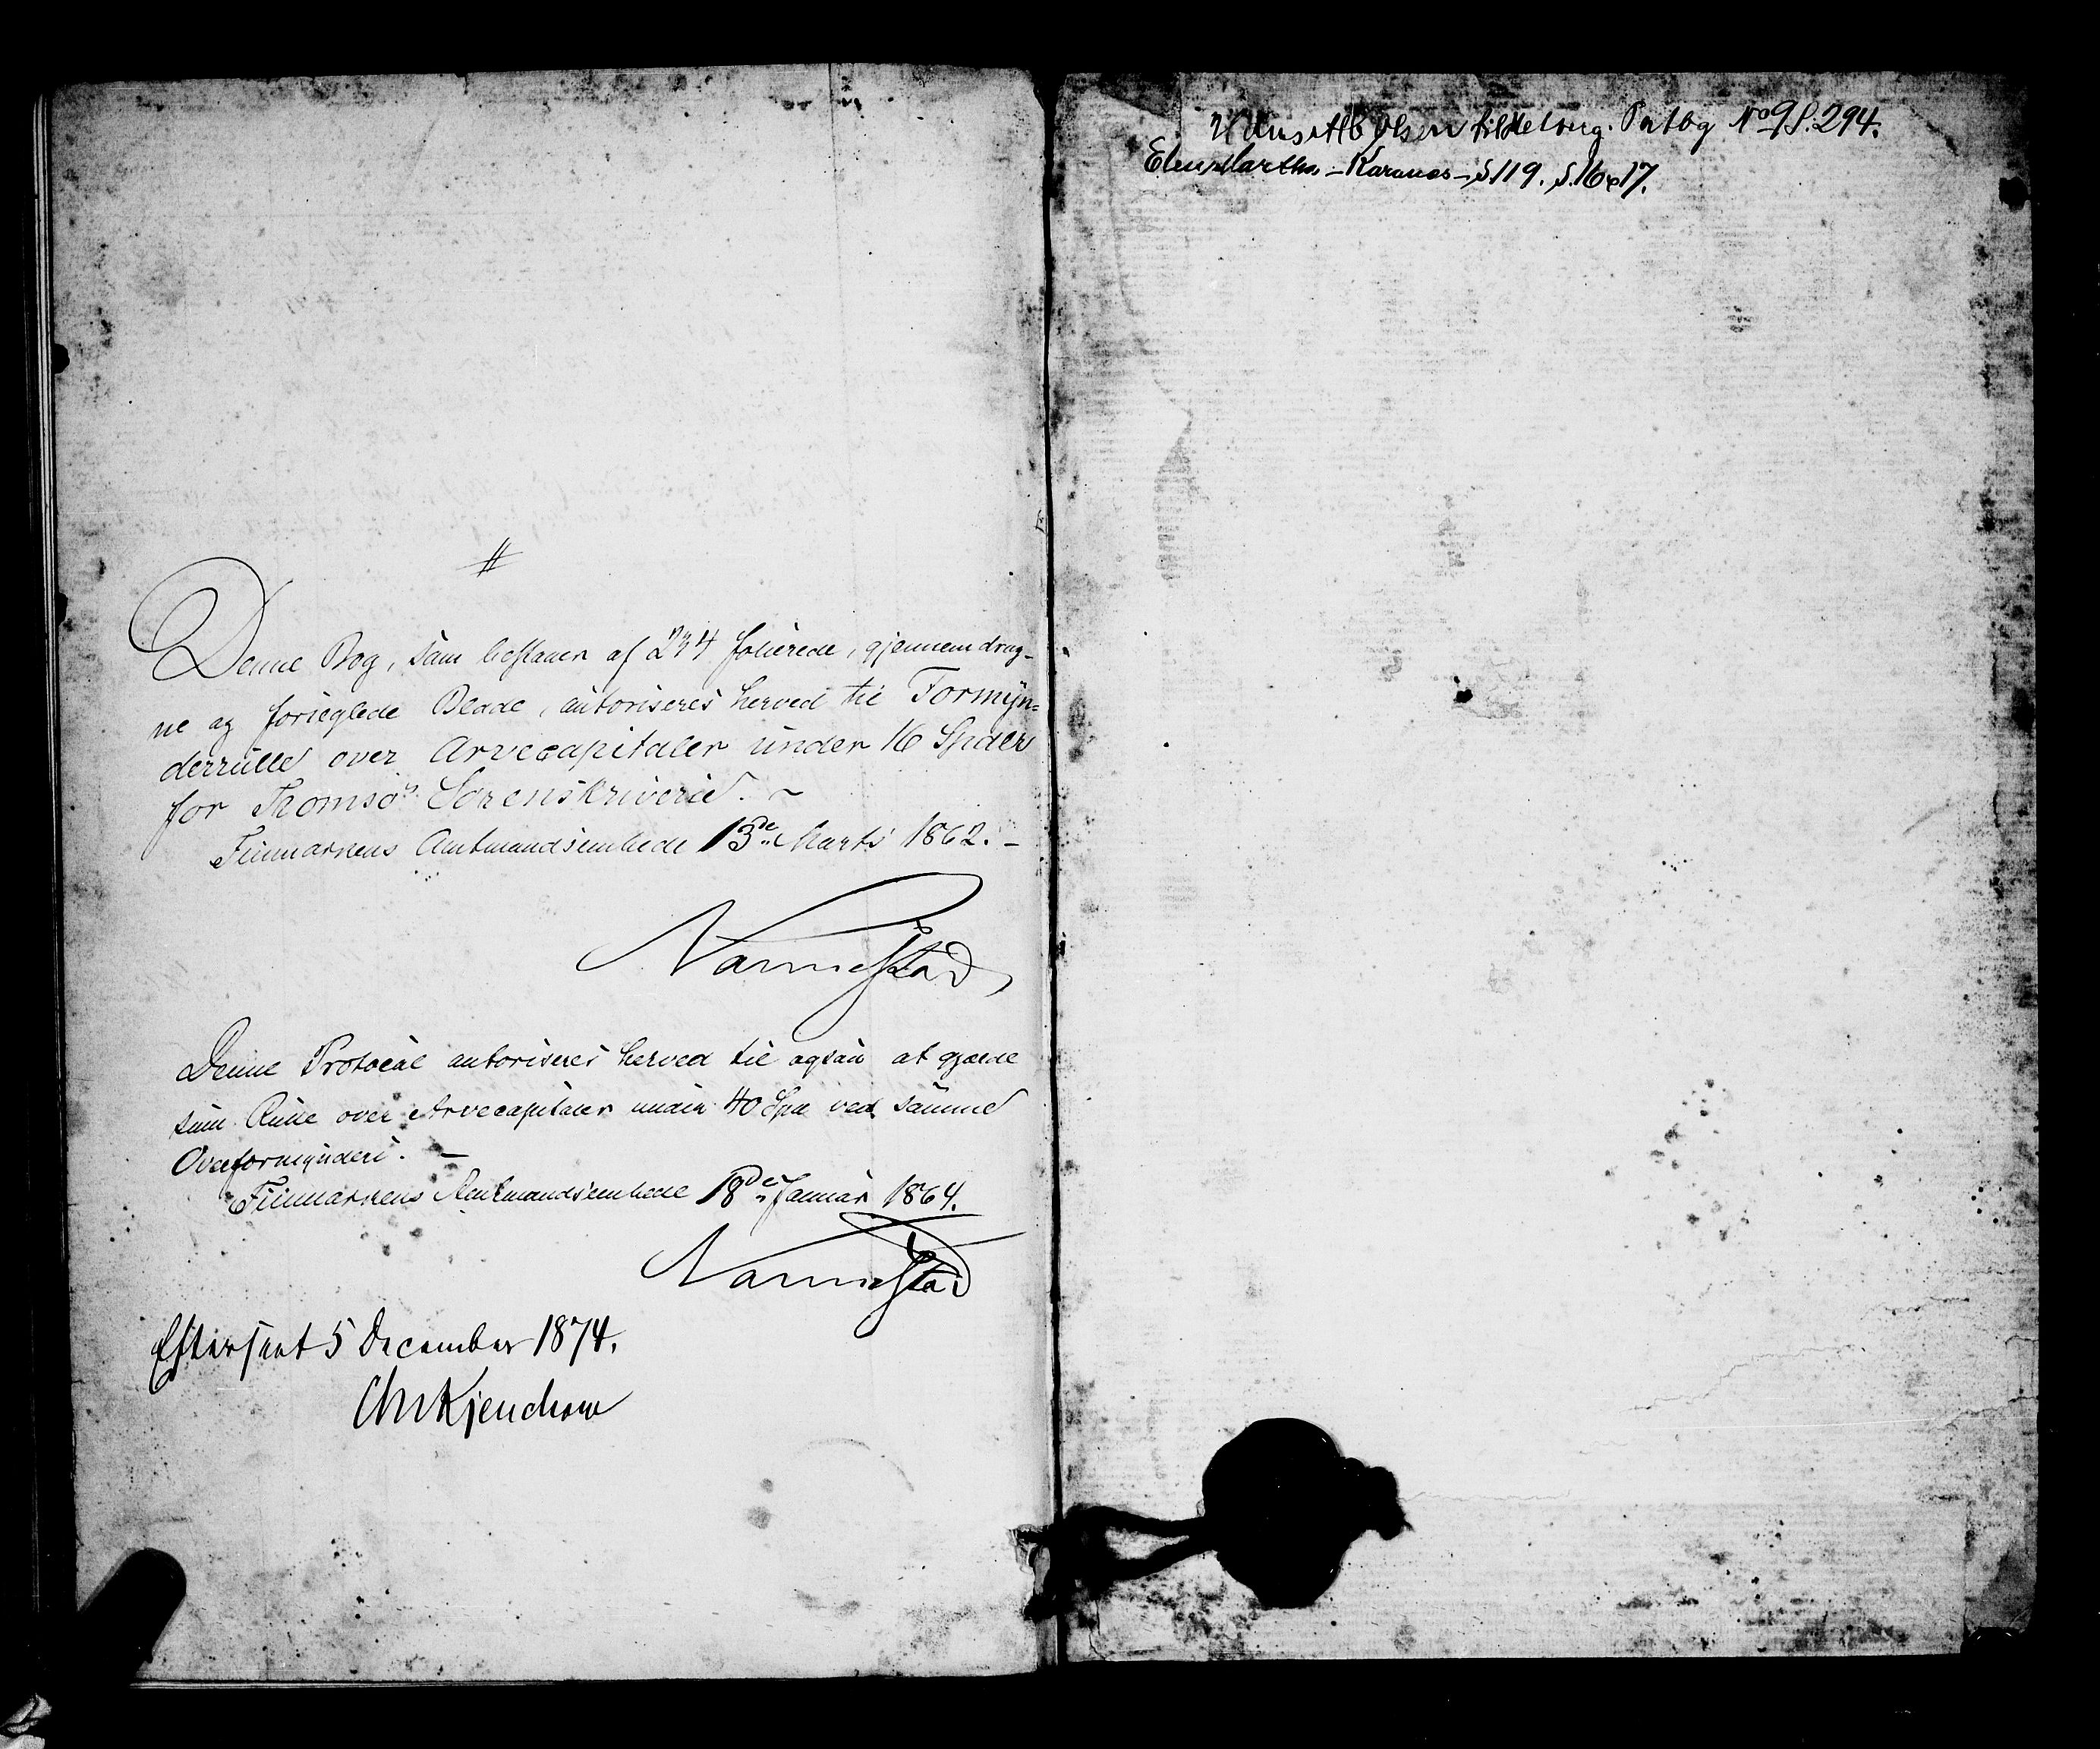 Denne Bog, som bestaaer af 234 folierede, gjennemdrag-
ne og forseglede Blade, autoriseres herved til Formyn=
derrulle over Arvecapitaler under 16 Spdlr
for Tromsø Sorenskriverie. ~
Finmarkens Amtmandsembede 13de Marts 1862. –
Nannestad
Denne Protocol autoriseres herved til ogsaa at gjælde
som Rulle over Arvecapitaler under 40 Spd ved samme
Overformynderi. –
Finmarkens Amtmandsembede 18de Januar 1864.
Nannestad
Efterseet 5 December 1874.
Kjerschow
Olsen No 9 S. 294.
Martha – Karanes – S 119. S. 16 & 17.